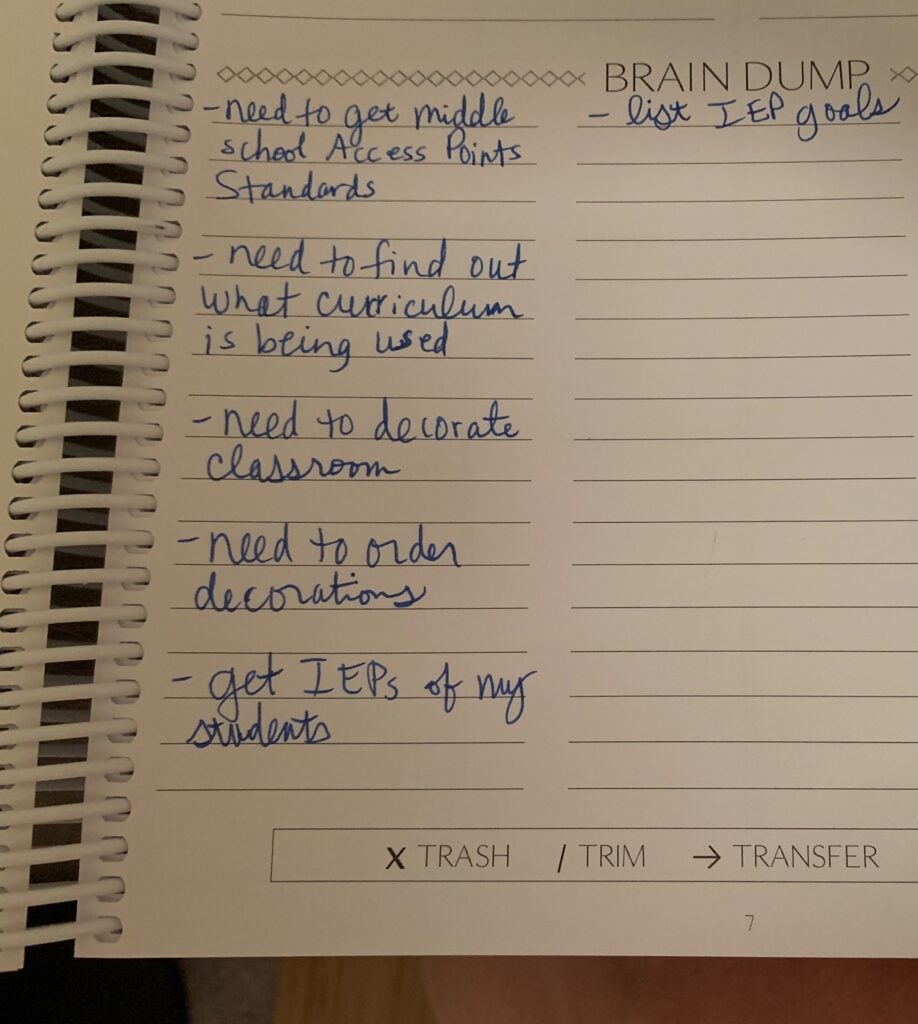 BRAIN DUMP
- need to get middle
school Access Points
Standards
- need to find out
what curriculum
is being used
- need to decorate
classroom
- need to order
decorations
- get IEPs of my
students
- list IEP goals
X TRASH / TRIM → TRANSFER
7